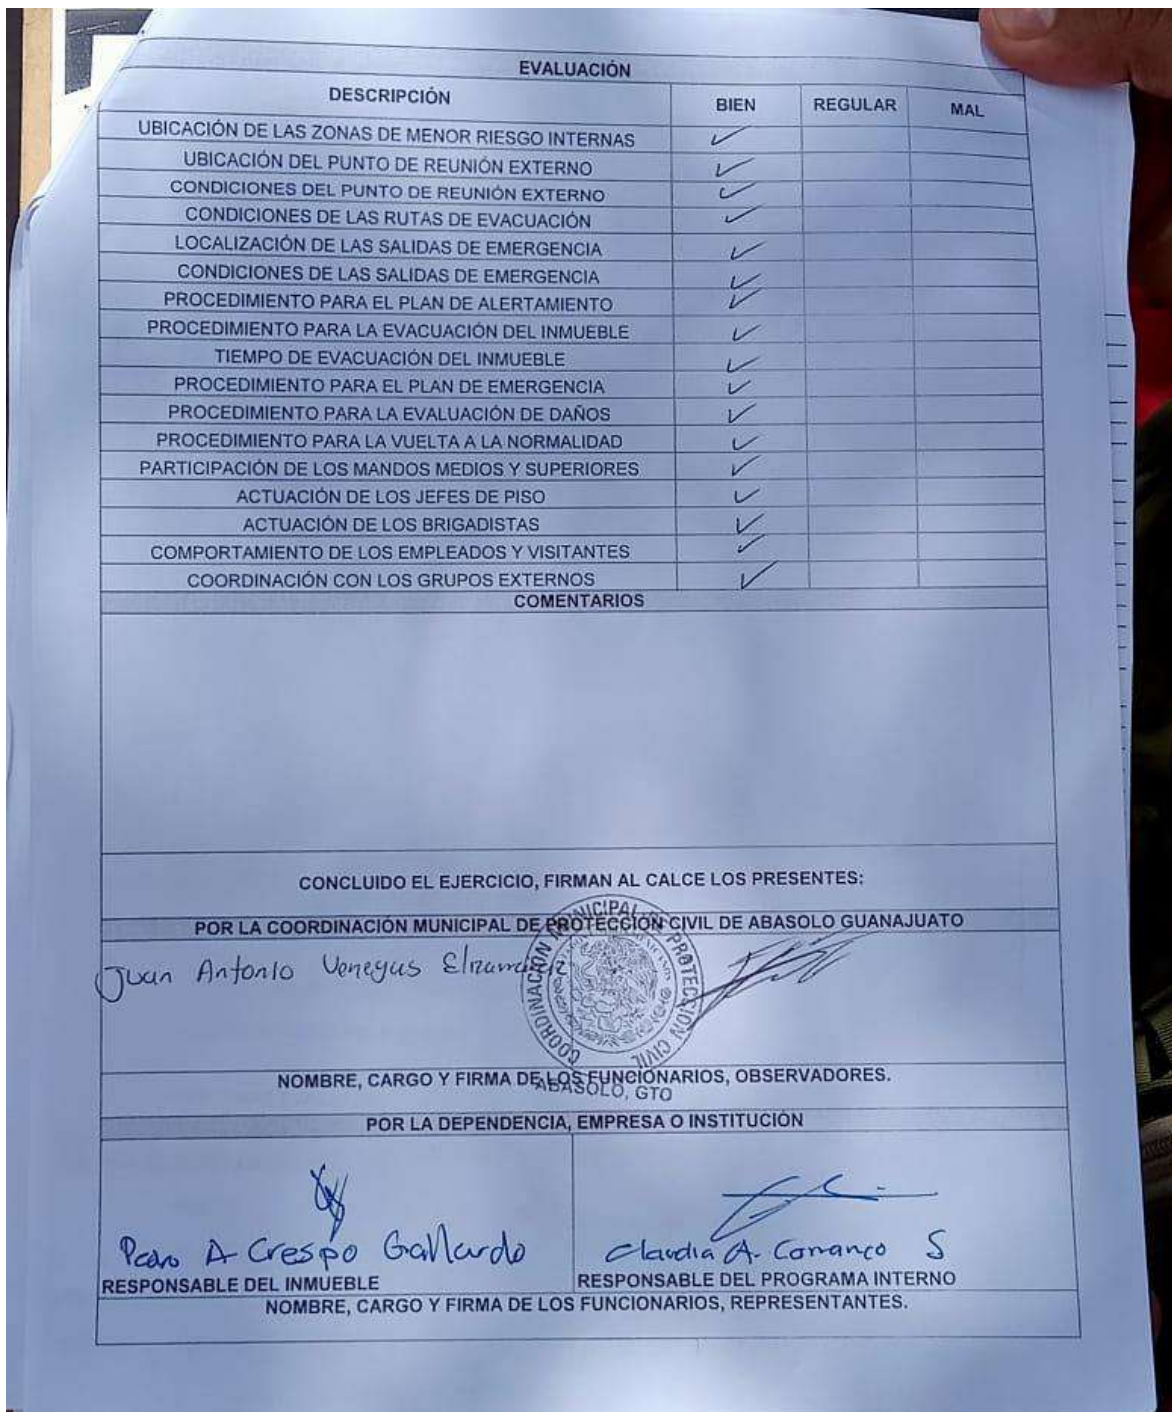 EVALUACIÓN
DESCRIPCIÓN BIEN REGULAR MAL
UBICACIÓN DE LAS ZONAS DE MENOR RIESGO INTERNAS ✓
UBICACIÓN DEL PUNTO DE REUNIÓN EXTERNO ✓
CONDICIONES DEL PUNTO DE REUNIÓN EXTERNO ✓
CONDICIONES DE LAS RUTAS DE EVACUACIÓN ✓
LOCALIZACIÓN DE LAS SALIDAS DE EMERGENCIA ✓
CONDICIONES DE LAS SALIDAS DE EMERGENCIA ✓
PROCEDIMIENTO PARA EL PLAN DE ALERTAMIENTO ✓
PROCEDIMIENTO PARA LA EVACUACIÓN DEL INMUEBLE ✓
TIEMPO DE EVACUACIÓN DEL INMUEBLE ✓
PROCEDIMIENTO PARA EL PLAN DE EMERGENCIA ✓
PROCEDIMIENTO PARA LA EVALUACIÓN DE DAÑOS ✓
PROCEDIMIENTO PARA LA VUELTA A LA NORMALIDAD ✓
PARTICIPACIÓN DE LOS MANDOS MEDIOS Y SUPERIORES ✓
ACTUACIÓN DE LOS JEFES DE PISO ✓
ACTUACIÓN DE LOS BRIGADISTAS ✓
COMPORTAMIENTO DE LOS EMPLEADOS Y VISITANTES ✓
COORDINACIÓN CON LOS GRUPOS EXTERNOS ✓
COMENTARIOS
CONCLUIDO EL EJERCICIO, FIRMAN AL CALCE LOS PRESENTES:
POR LA COORDINACIÓN MUNICIPAL DE PROTECCIÓN CIVIL DE ABASOLO GUANAJUATO
Juan Antonio Venegas
COORDINACIÓN MUNICIPAL DE PROTECCIÓN CIVIL
ABASOLO, GTO
NOMBRE, CARGO Y FIRMA DE LOS FUNCIONARIOS, OBSERVADORES.
POR LA DEPENDENCIA, EMPRESA O INSTITUCIÓN
Pedro A Crespo Gallardo
RESPONSABLE DEL INMUEBLE
Claudia A. Carranco S
RESPONSABLE DEL PROGRAMA INTERNO
NOMBRE, CARGO Y FIRMA DE LOS FUNCIONARIOS, REPRESENTANTES.